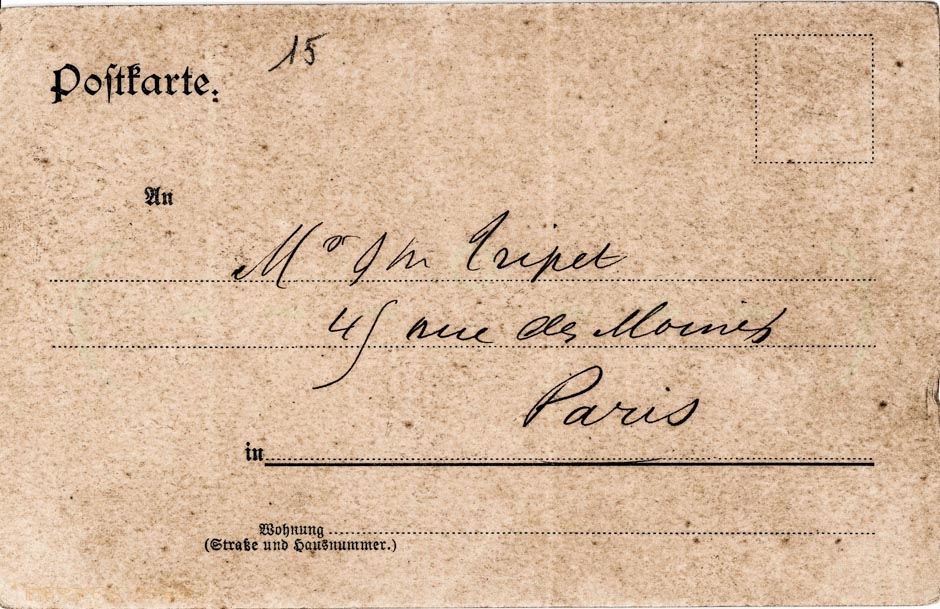 Postkarte.
15
An
Mr Tripet
45 rue des Moines
Paris
in
Wohnung
(Straße und Hausnummer.)